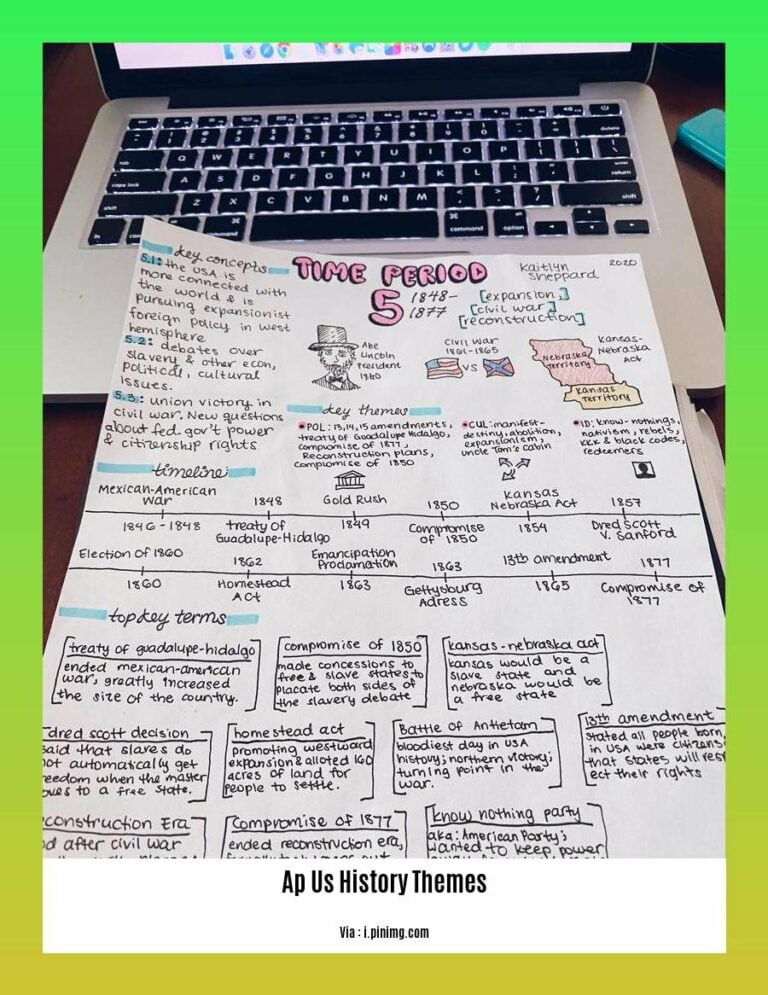 delete
tab
Q W E R T Y U I O P
return
caps lock
A S D F G H J K L
shift
Z X C V B N M
command
command
option
key concepts
5.1: the USA is
more connected with
the world & is
pursuing expansionist
foreign policy in west
hemisphere
5.2: debates over
slavery & other econ,
political, cultural
issues.
5.3: union victory in
civil war. New questions
about fed. gov't power
& citizenship rights
TIME PERIOD
5
1848-
1877
[expansion,]
[civil war,]
[reconstruction]
Kaitlyn
Sheppard
2020
Abe
Lincoln
President
1860
Civil War
1861-1865
VS
Nebraska
Territory
Kansas
Territory
Kansas-
Nebraska
Act
key themes
•POL: 13,14,15 amendments,
treaty of Guadalupe Hidalgo,
compromise of 1877,
Reconstruction plans,
compromise of 1850
•CUL: manifest-
destiny, abolition,
expansionism,
uncle Tom's cabin
•ID: know-nothings,
nativism, rebels,
KKK & black codes,
redeemers
timeline
Mexican-American
War
1846-1848
1848
treaty of
Guadalupe-Hidalgo
Gold Rush
1849
1850
Compromise
of 1850
Kansas
Nebraska Act
1854
1857
Dred Scott
V. Sanford
Election of 1860
1860
1862
Homestead
Act
Emancipation
Proclamation
1863
1863
Gettysburg
Adress
13th amendment
1865
1877
Compromise of
1877
top key terms
treaty of guadalupe-hidalgo
ended mexican-american
war, greatly increased
the size of the country.
compromise of 1850
made concessions to
free & slave states to
placate both sides of
the slavery debate
kansas-nebraska act
kansas would be a
slave state and
nebraska would be
a free state
dred scott decision
said that slaves do
not automatically get
eedom when the master
oves to a free state.
homestead act
promoting westward
expansion & alloted 160
acres of land for
people to settle.
Battle of Antietam
bloodiest day in USA
history; northern victory;
turning point in the
war.
13th amendment
stated all people born
in USA were citizens
that states will resp
ect their rights
construction Era
d after civil war
Compromise of 1877
ended reconstruction era,
know nothing party
aka: American Party;
wanted to keep power
Ap Us History Themes
Via : i.pinimg.com